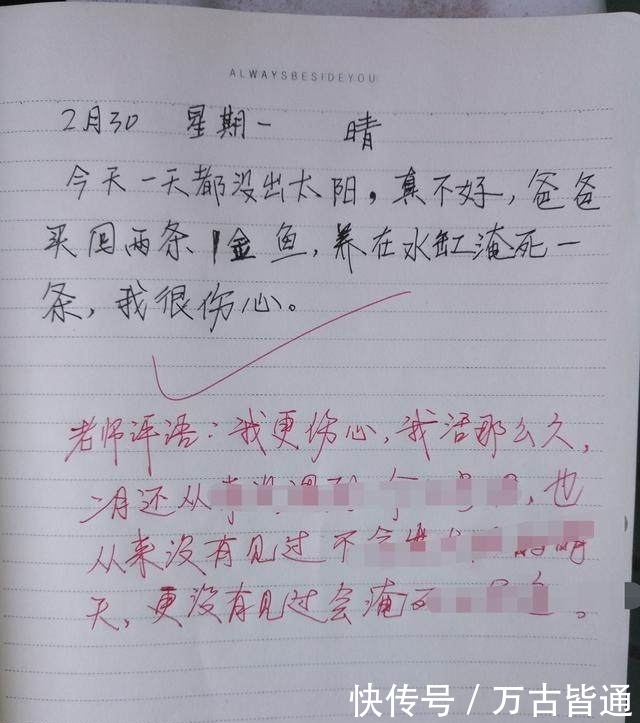 ALWAYSBESIDEYOU
2月30 星期一 晴
今天一天都没出太阳，真不好，爸爸
买回两条金鱼，养在水缸淹死一
条，我很伤心。
老师评语：我更伤心，我活那么久，
二月还从 ，也
从来没有见过不
天，更没有见过会淹 。
快传号／万古皆通